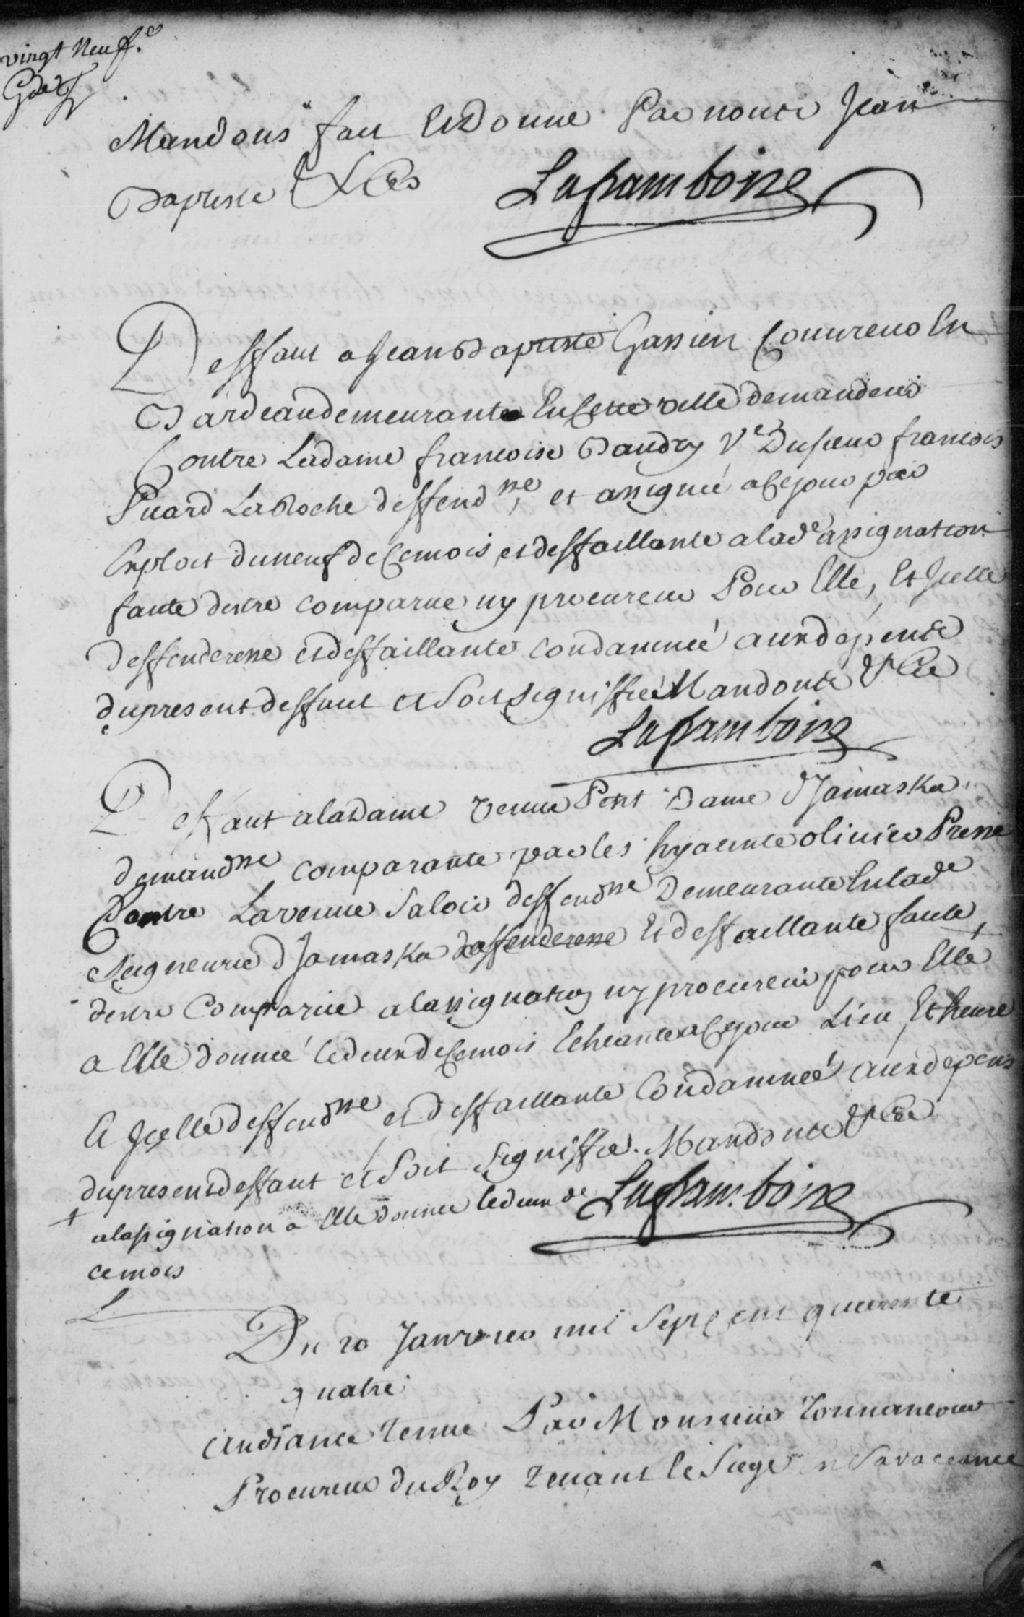 vingt neuf.e
Mandons fait et donné par nous Jean
Baptiste &c
Laframboise
Deffaut a Jean Baptiste Gassien Couvreur En
Bardeau demeurante En cette ville demandeur
Contre Ladame francoise Baudry Ve Dusieur francois
Puard LaRoche deffendsse et assigné a Ce jour par
Exploit du neuf de Ce mois, et deffaillante a lade assignation
faute destre comparue ny procureur Pour Elle, Et Icelle
deffenderesse et deffaillante condamneé aux depens
du present deffaut et Soit signiffié Mandons &Ca
Laframboise
Deffaut a la dame veuve Petit Dame dYamaska
demandsse comparante par les hyacinte olivier Presse
Contre La veuve Salois deffendsse Demeurante En lade
Seigneurie dYamaska deffenderesse Et deffaillante faute
destre Comparüe a lassignation ny procureur pour Elle
a Elle donneé le deux de Ce mois Echeante a Ce jour Lieu Et heure
Et Icelle deffendsse et deffaillante Condamneé aux depens
du present deffaut et Soit Signiffié. Mandons &Ca
+ alassignation a Elle donneé le deux de
ce mois
Laframboise
Du 20 Janvier mil Sept Cent quarente
quatre
audiance tenue Par Monsieur Tonnancour
Procureur du Roy tenant le Siege